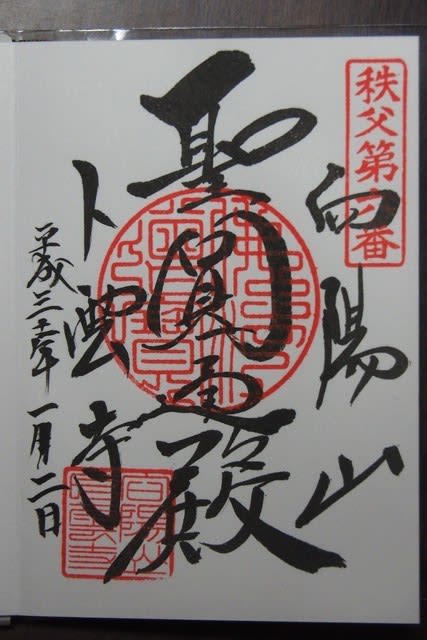 秩父第六番
向陽山
聖圓通殿
卜雲寺
平成三十年一月二日